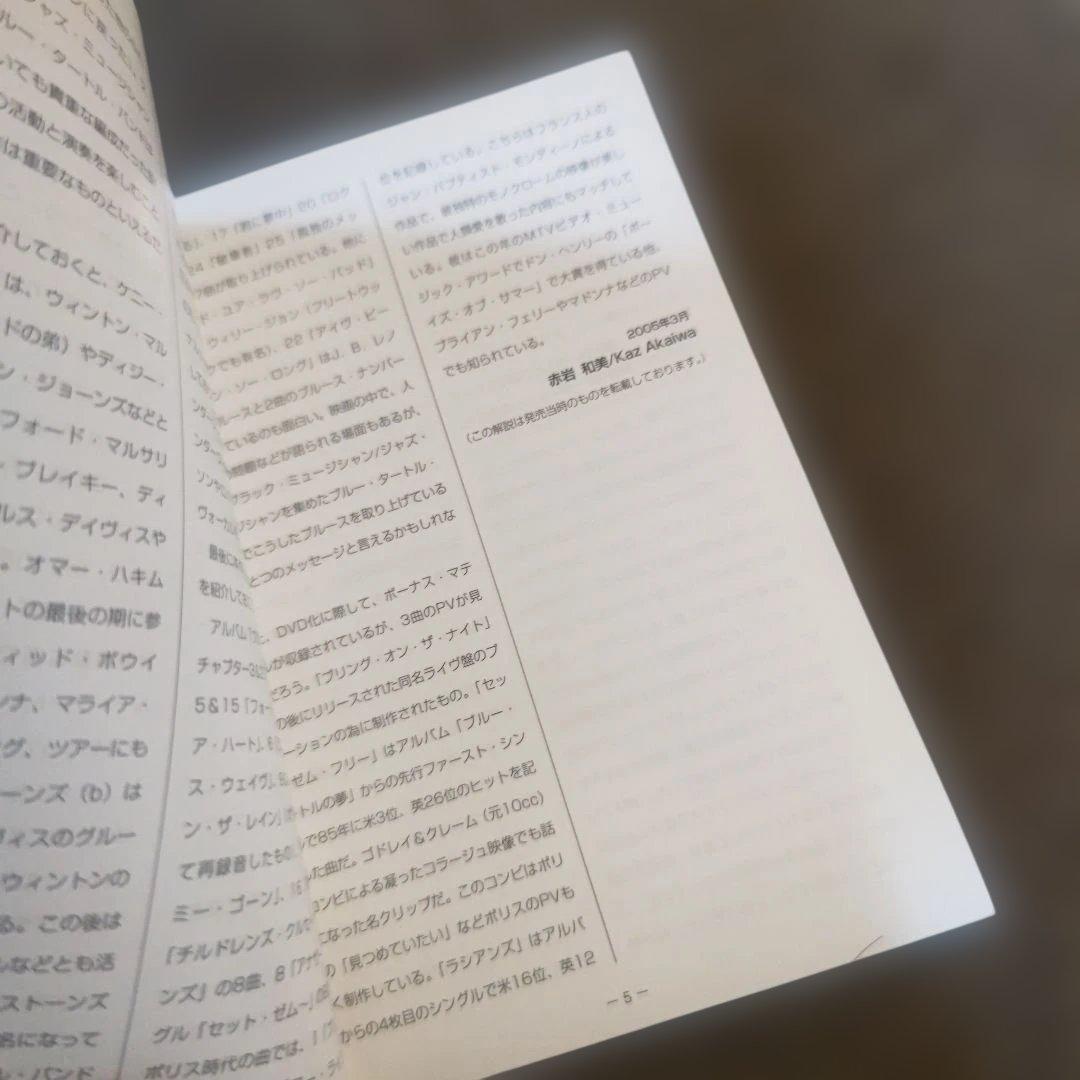 ジャズ・ミュージシャン
ルー・タートル・バンドは
いても貴重な編成だった
の活動と演奏を楽しむこと
は重要なものといえるで
介しておくと、ケニー・
は、ウィントン・マル
ドの弟）やディジー・
ン・ジョーンズなどと
フォード・マルサリ
・ブレイキー、ディ
ルス・デイヴィスや
。オマー・ハキム
トの最後の期に参
ィッド・ボウイ
ンナ、マライア・
グ、ツアーにも
ーンズ（b）は
ヴィスのグルー
ウィントンの
る。この後は
ルなどとも活
ストーンズ
名になって
レ・バンド
ソンや
ヴォーカル
最後に
を紹介して
アルバム
チャプター3
5＆15「フォー
ア・ハート」、6
ス・ウェイヴ」、8
ン・ザ・レイン」
て再録音したもの
ミー・ゴーン」、16
「チルドレンズ・クル
ンズ」の8曲、8「アナザ
グル「セット・ゼム〜」の
ポリス時代の曲では、1「
る」、17「君に夢中」20「ロク
24「駆逐者」25「孤独のメッ
7曲が取り上げられている。他に
ド・ユア・ラヴ・ソー・バッド」
ウィリー・ジョン（フリートウッ
クでも有名）、22「アイヴ・ビー
ン・ソー・ロング」はJ. B. レノ
ルースと2曲のブルース・ナンバー
ているのも面白い。映画の中で、人
問題などが語られる場面もあるが、
ブラック・ミュージシャン/ジャズ・
ジシャンを集めたブルー・タートル・
でこうしたブルースを取り上げている
とつのメッセージと言えるかもしれな
、DVD化に際して、ボーナス・マテ
ルが収録されているが、3曲のPVが見
だろう。「ブリング・オン・ザ・ナイト」
の後にリリースされた同名ライヴ盤のプ
ーションの為に制作されたもの。「セッ
ゼム・フリー」はアルバム「ブルー・
トルの夢」からの先行ファースト・シン
で85年に米3位、英26位のヒットを記
た曲だ。ゴドレイ＆クレーム（元10cc）
コンビによる凝ったコラージュ映像でも話
になった名クリップだ。このコンビはポリ
の「見つめていたい」などポリスのPVも
く制作している。「ラシアンズ」はアルバ
からの4枚目のシングルで米16位、英12
位を記録している。こちらはフランス人の
ジャン・バプティスト・モンディーノによる
作品で、彼独特のモノクロームの映像が美し
い作品で人類愛を歌った内容にもマッチして
いる。彼はこの年のMTVビデオ・ミュー
ジック・アワードでドン・ヘンリーの「ボー
イズ・オブ・サマー」で大賞を得ている他、
ブライアン・フェリーやマドンナなどのPV
でも知られている。
2005年3月
赤岩 和美/Kaz Akaiwa
（この解説は発売当時のものを転載しております。）
― 5 ―